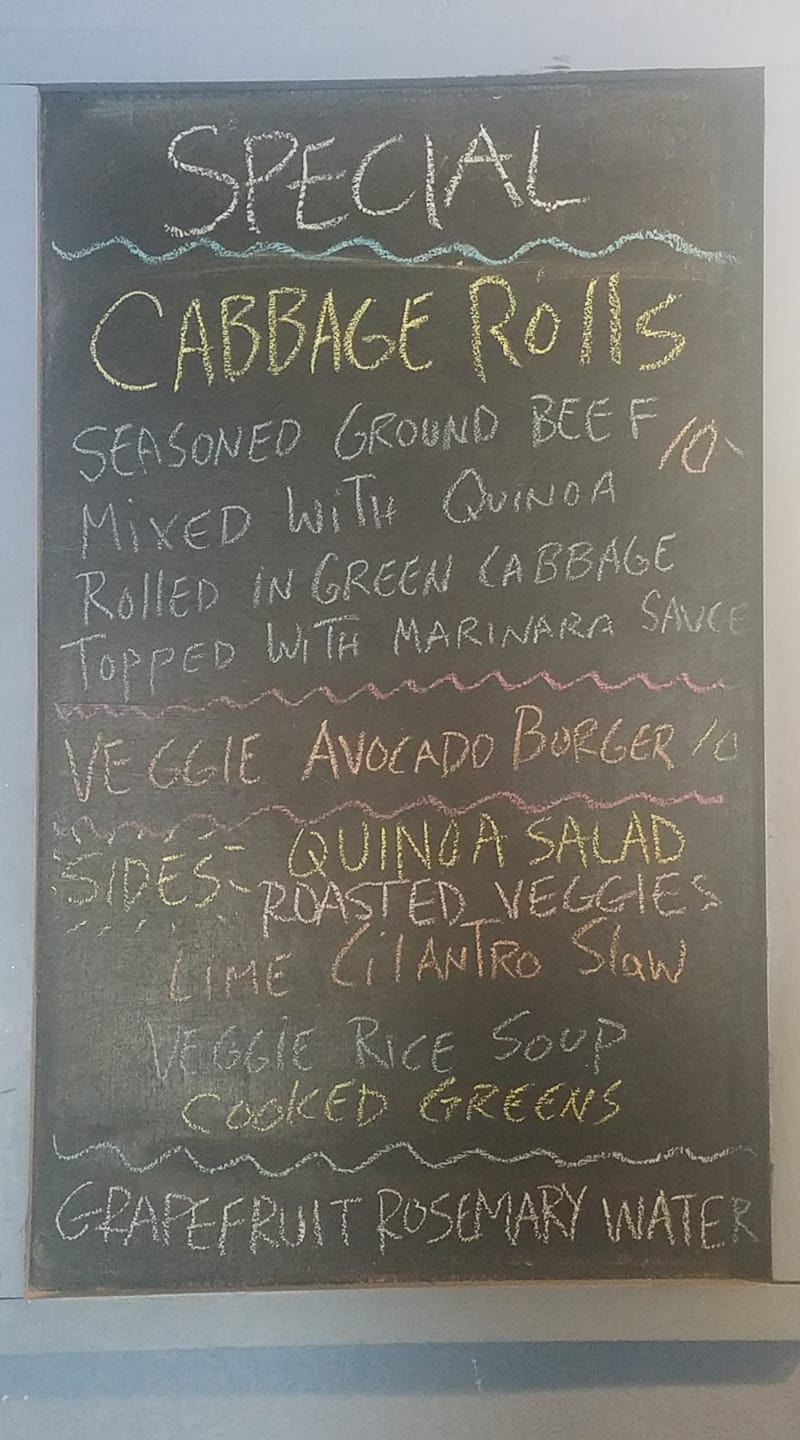 SPECIAL
CABBAGE Rolls
SEASONED GROUND BEEF 10-
MiXED WiTH QUiNOA
RollED IN GREEN CABBAGE
TOPPED WiTH MARINARA SAUCE
VEGGIE AVOCADO BURGER 10
SIDES- QUINOA SALAD
ROASTED VEGGIES
LIME CilANTRO Slaw
VEGGiE RiCE SOUP
COOKED GREENS
GRAPEFRUIT ROSEMARY WATER